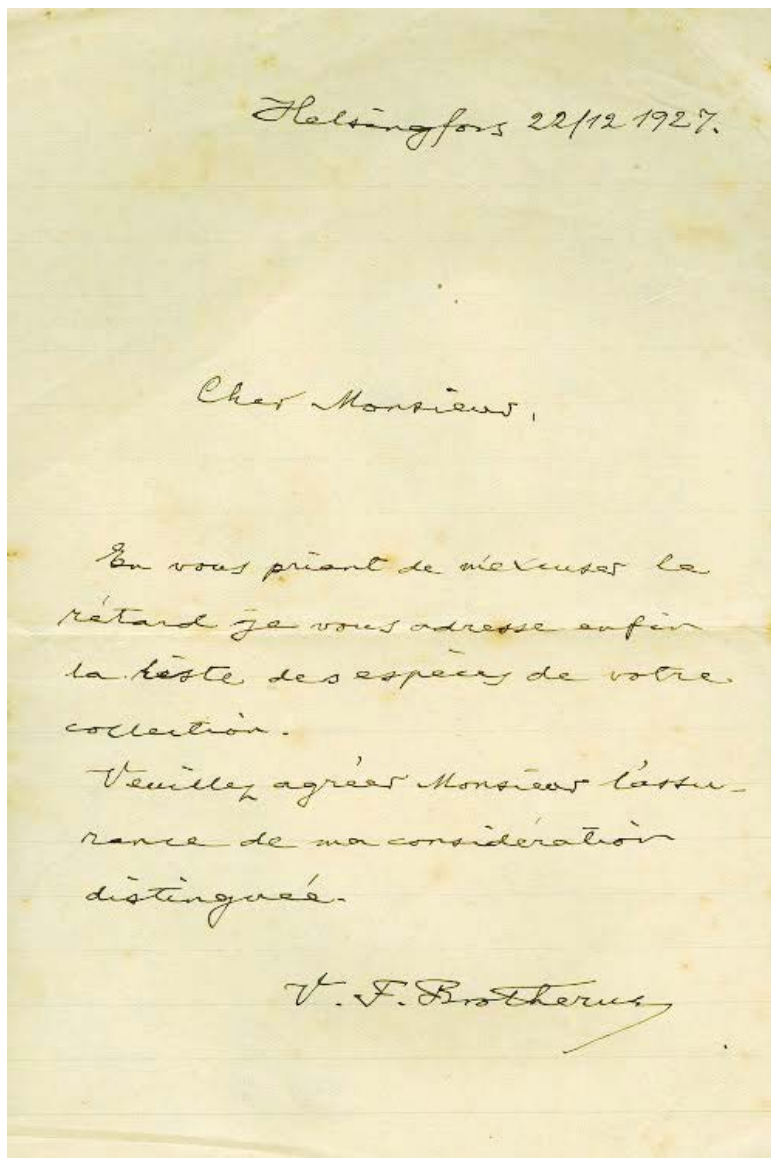 Helsingfors 22/12 1927.
Cher Monsieur,
En vous priant de m'excuser le
rétard je vous adresse enfin
la liste des espèces de votre
collection.
Veuillez agréer Monsieur l'assu-
rance de ma considération
distinguée.
V. F. Brotherus